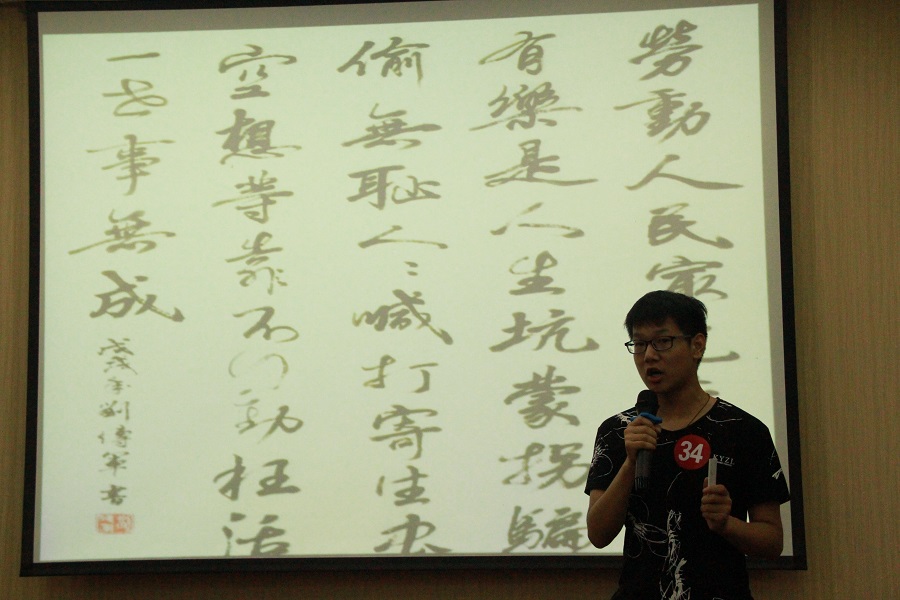 勞動人民最
有樂是人生坑蒙拐騙
偷無恥人々喊打寄生虫
空想等靠不行動枉活
一世事無成
戊戌年劉傳軍書
34